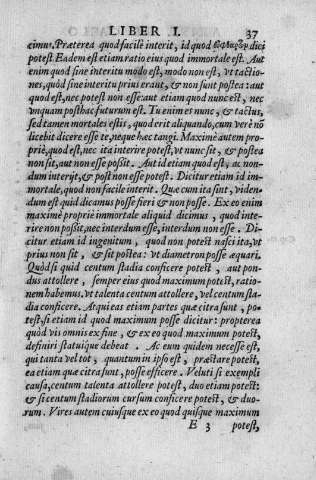 LIBER I. 37
ximus. Præterea quod facilè interit, id quod dici
potest Eadem est etiam ratio eius quod immortale est. Aut
enim quod sine interitu modo est, modo non est, vt tactio-
nes, quòd sine interitu prius erant, & non sunt postea: aut
quod est, nec potest non esse: aut etiam quod nunc est, nec
vnquam posthac futurum est. Tu enim es nunc, & tactus,
sed tamen mortales estis, quod erit aliquando, cum verè nō
licebit dicere esse te, neque hæc tangi. Maximè autem pro-
priè, quod est, nec ita interire potest, vt nunc sit, & postea
non sit, aut non esse possit. Aut id etiam quod est, ac non-
dum interijt, & post non esse potest. Dicitur etiam id im-
mortale, quod non facile interit. Quæ cum ita sint, viden-
dum est quid dicamus posse fieri & non posse. Ex eo enim
maximè propriè immortale aliquid dicimus, quod inte-
rire non possit, nec interdum esse, interdum non esse. Di-
citur etiam id ingenitum, quod non potest nasci ita, vt
prius non sit, & sit postea: vt diametron posse æquari.
Quòd si quid centum stadia conficere potest, aut pon-
dus attollere, semper eius quod maximum potest, ratio-
nem habemus. vt talenta centum attollere, vel centum sta-
dia conficere. Atqui eas etiam partes quæ citra sunt, po-
test, si etiam id quod maximum posse dicitur: propterea
quòd vis omnis ex fine, & ex eo quod maximum potest,
definiri statuique debeat. Ac eum quidem necesse est,
qui tanta vel tot, quantum in ipso est, præstare potest,
ea etiam quæ citra sunt, posse efficere. Veluti si exempli
causa, centum talenta attollere potest, duo etiam potest:
& si centum stadiorum cursum conficere potest, & duo-
rum. Vires autem cuiusque ex eo quod quisque maximum
E 3 potest,